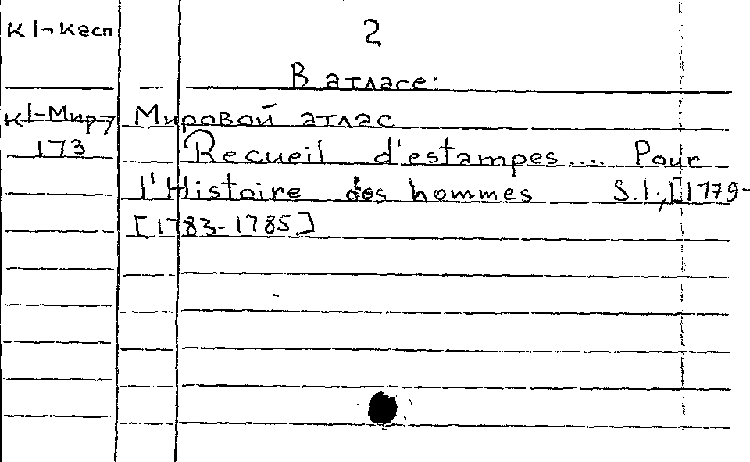 К 1-Касп
2
В атласе:
К 1-Мир 7
Мировой атлас
173
Recueil d'estampes.... Pour
l'Histoire des hommes S.l., [1779-
[1783-1785]